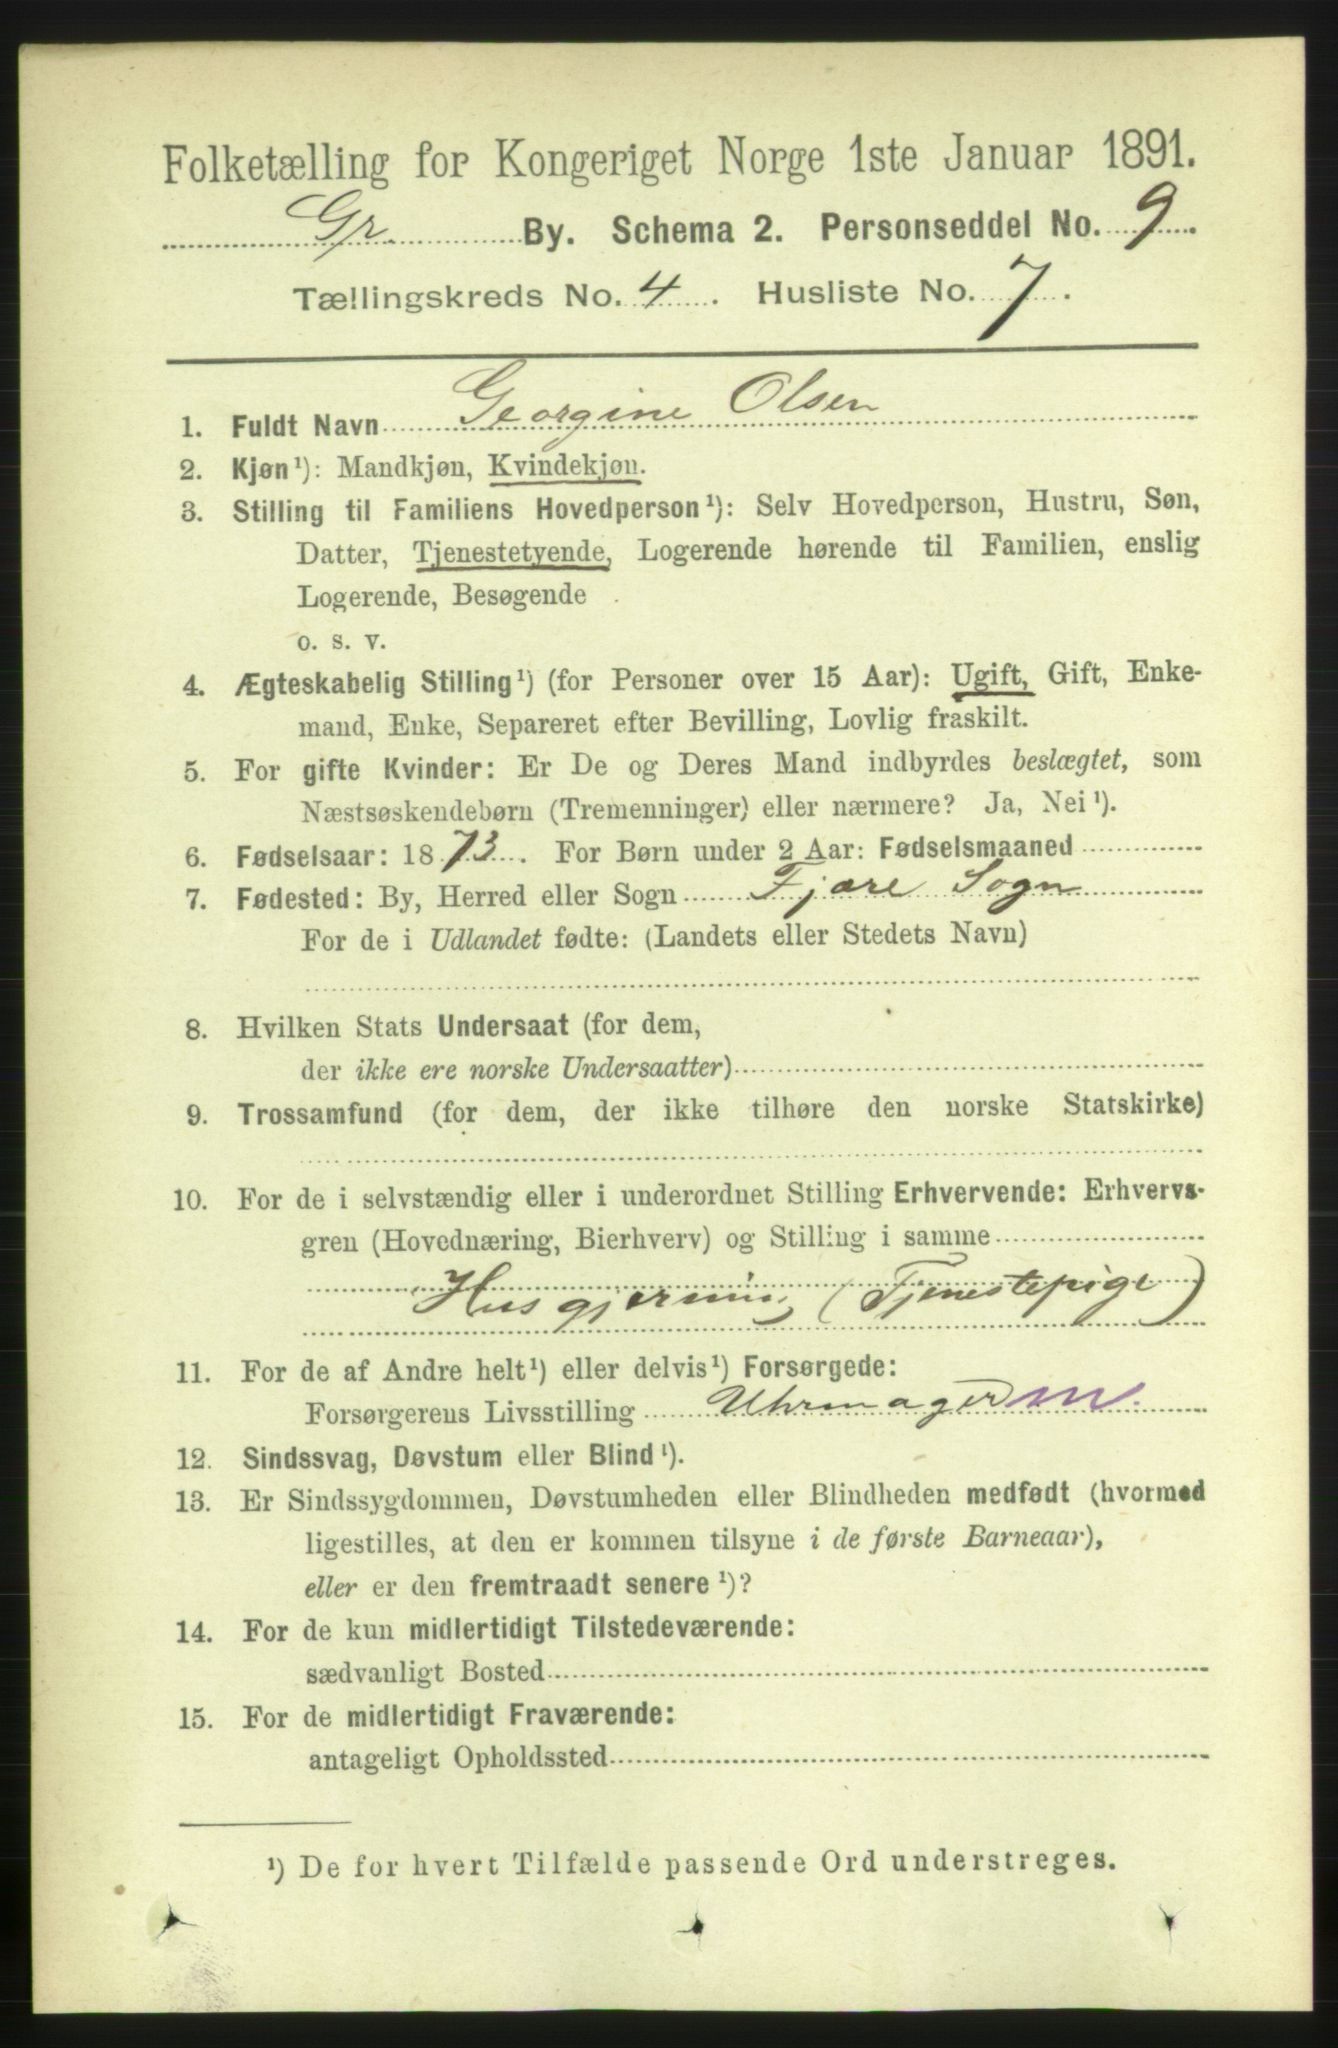 Folketælling for Kongeriget Norge 1ste Januar 1891.
Gr. By. Schema 2. Personseddel No. 9.
Tællingskreds No. 4. Husliste No. 7.
1. Fuldt Navn Georgine Olsen
2. Kjøn¹): Mandkjøn, Kvindekjøn.
3. Stilling til Familiens Hovedperson¹): Selv Hovedperson, Hustru, Søn,
Datter, Tjenestetyende, Logerende hørende til Familien, enslig
Logerende, Besøgende
o. s. v.
4. Ægteskabelig Stilling¹) (for Personer over 15 Aar): Ugift, Gift, Enke-
mand, Enke, Separeret efter Bevilling, Lovlig fraskilt.
5. For gifte Kvinder: Er De og Deres Mand indbyrdes beslægtet, som
Næstsøskendebørn (Tremenninger) eller nærmere? Ja, Nei¹).
6. Fødselsaar: 1873. For Børn under 2 Aar: Fødselsmaaned
7. Fødested: By, Herred eller Sogn Fjære Sogn
For de i Udlandet fødte: (Landets eller Stedets Navn)
8. Hvilken Stats Undersaat (for dem,
der ikke ere norske Undersaatter)
9. Trossamfund (for dem, der ikke tilhøre den norske Statskirke)
10. For de i selvstændig eller i underordnet Stilling Erhvervende: Erhvervs-
gren (Hovednæring, Bierhverv) og Stilling i samme
Husgjerning (Tjenestepige)
11. For de af Andre helt¹) eller delvis¹) Forsørgede:
Forsørgerens Livsstilling Uhrmager m.
12. Sindssvag, Døvstum eller Blind¹).
13. Er Sindssygdommen, Døvstumheden eller Blindheden medfødt (hvormed
ligestilles, at den er kommen tilsyne i de første Barneaar),
eller er den fremtraadt senere¹)?
14. For de kun midlertidigt Tilstedeværende:
sædvanligt Bosted
15. For de midlertidigt Fraværende:
antageligt Opholdssted
¹) De for hvert Tilfælde passende Ord understreges.